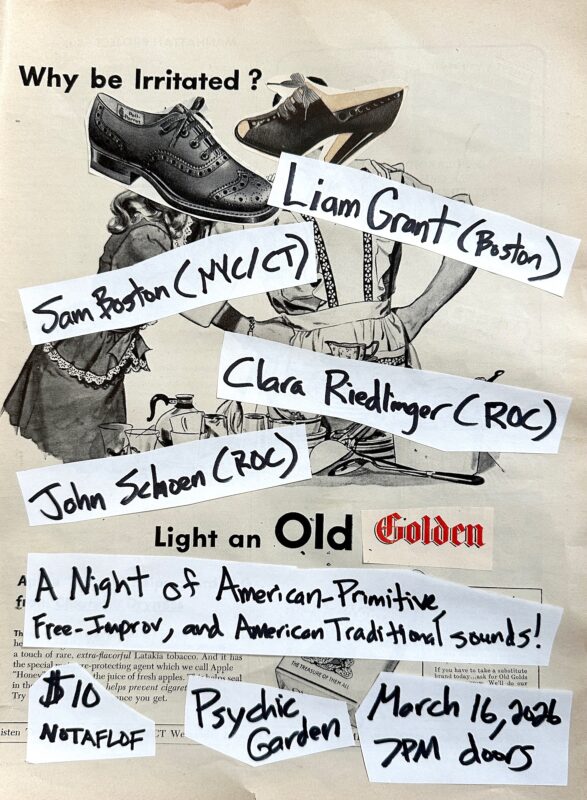 Why be Irritated?
Liam Grant (Boston)
Sam Boston (NYC/CT)
Clara Riedlinger (ROC)
John Schoen (ROC)
Light an Old Golden
A Night of American-Primitive,
Free-Improv, and American Traditional sounds!
a touch of rare, extra-flavorful Latakia tobacco. And it has
the special
re-protecting agent which we call Apple
"Honey
the juice of fresh apples.
helps seal
in the
helps prevent cigaret
Try
ence you get.
THE TREASURE OF THEM ALL
If you have to take a substitute
brand today...ask for Old Golds
$10
NOTAFLOF
Psychic
Garden
March 16, 2026
7PM doors